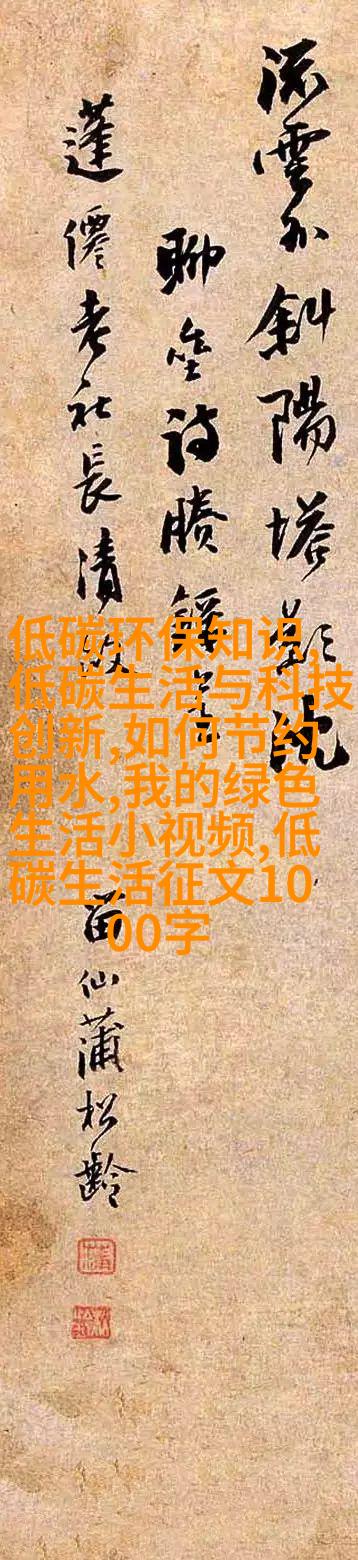 流雲外斜陽塔影沈
聊坐詩勝
蓬僊老社長清
留仙蒲松齡
低碳环保知识,
低碳生活与科技
创新,如何节约
用水,我的绿色
生活小视频,低
碳生活征文10
00字